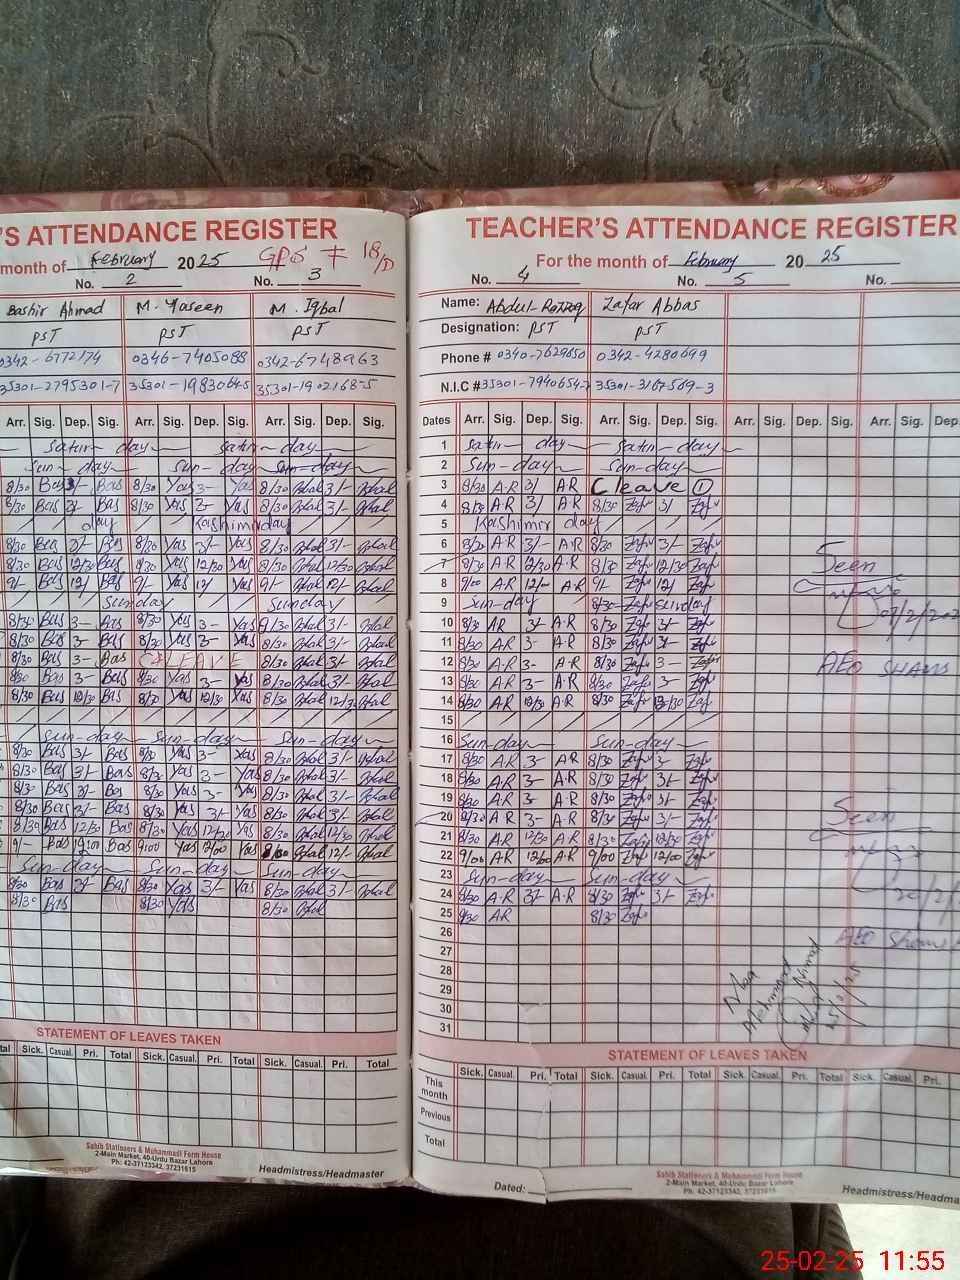 'S ATTENDANCE REGISTER
month of February 2025 GPS # 18/D
No. 2 No. 3
Bashir Ahmad M. Yaseen M. Iqbal
PST PST PST
0342-6772174 0346-7405088 0342-6748963
35301-2795301-7 35301-1983064-5 35301-1902168-5
Arr. Sig. Dep. Sig. Arr. Sig. Dep. Sig. Arr. Sig. Dep. Sig.
Satur-day Satur-day
Sun-day Sun-day Sun-day
8/30 Bas 3/- Bas 8/30 Yas 3- Yas 8/30 Iqbal 3/- Iqbal
8/30 Bas 3/- Bas 8/30 Yas 3- Yas 8/30 Iqbal 3/- Iqbal
day Kashimir day
8/30 Bas 3/- Bas 8/30 Yas 3/- Yas 8/30 Iqbal 3/- Iqbal
8/30 Bas 12/30 Bas 8/30 Yas 12/30 Yas 8/30 Iqbal 12/30 Iqbal
9/- Bas 12/ Bas 9/- Yas 12/ Yas 9/- Iqbal 12/- Iqbal
Sunday Sunday
8/30 Bas 3- Bas 8/30 Yas 3- Yas 8/30 Iqbal 3/- Iqbal
8/30 Bas 3- Bas 8/30 Yas 3- Yas 8/30 Iqbal 3/- Iqbal
8/30 Bas 3- Bas C LEAVE 8/30 Iqbal 3/- Iqbal
8/30 Bas 3- Bas 8/30 Yas 3- Yas 8/30 Iqbal 3/- Iqbal
8/30 Bas 12/30 Bas 8/30 Yas 12/30 Yas 8/30 Iqbal 12/30 Iqbal
Sun-day Sun-day Sun-day
8/30 Bas 3/- Bas 8/30 Yas 3- Yas 8/30 Iqbal 3/- Iqbal
8/30 Bas 3/- Bas 8/30 Yas 3- Yas 8/30 Iqbal 3/- Iqbal
8/30 Bas 3/- Bas 8/30 Yas 3- Yas 8/30 Iqbal 3/- Iqbal
8/30 Bas 3/- Bas 8/30 Yas 3/- Yas 8/30 Iqbal 3/- Iqbal
8/30 Bas 12/30 Bas 8/30 Yas 12/30 Yas 8/30 Iqbal 12/30 Iqbal
9/- Bas 12:00 Bas 9:00 Yas 12/00 Yas Iqbal 12/- Iqbal
Sun-day Sun-day Sun-day
8/30 Bas 3/- Bas 8/30 Yas 3/- Yas 8/30 Iqbal 3/- Iqbal
8/30 Bas 8/30 Yas 8/30 Iqbal
STATEMENT OF LEAVES TAKEN
tal Sick. Casual. Pri. Total Sick. Casual. Pri. Total Sick. Casual. Pri. Total
Sahib Stationers & Muhammadi Form House
2-Main Market, 40-Urdu Bazar Lahore
Ph: 42-37123342, 37231615
Headmistress/Headmaster
TEACHER'S ATTENDANCE REGISTER
For the month of February 2025
No. 4 No. 5 No.
Name: Abdul-Razzaq Zafar Abbas
Designation: PST PST
Phone # 0340-7629650 0342-4280699
N.I.C # 35301-7940654-7 35301-3167569-3
Dates Arr. Sig. Dep. Sig. Arr. Sig. Dep. Sig. Arr. Sig. Dep. Sig. Arr. Sig. Dep.
1 Satur-day Satur-day
2 Sun-day Sun-day
3 8/30 A-R 3/ A-R C leave ①
4 8/30 A-R 3/ A-R 8/30 Zafr 3/ Zafr
5 Kashimir day
6 8/30 A-R 3/- A-R 8/30 Zafr 3/- Zafr
7 8/30 A-R 12/30 A-R 8/30 Zafr 12/30 Zafr
8 9/00 A-R 12/- A-R 9/- Zafr 12/ Zafr
9 Sun-day 8/30 Zafr Sunday
10 8/30 AR 3/- A-R 8/30 Zafr 3/- Zafr
11 8/30 AR 3- A-R 8/30 Zafr 3- Zafr
12 8/30 AR 3- A-R 8/30 Zafr 3- Zafr
13 8/30 AR 3- A-R 8/30 Zafr 3- Zafr
14 8/30 AR 12/30 A-R 8/30 Zafr 12/30 Zafr
15
16 Sun-day Sun-day
17 8/30 AR 3- A-R 8/30 Zafr 3- Zafr
18 8/30 AR 3- A-R 8/30 Zafr 3/- Zafr
19 8/30 AR 3- A-R 8/30 Zafr 3/- Zafr
20 8/30 A-R 3- A-R 8/30 Zafr 3/- Zafr
21 8/30 AR 12/30 A-R 8/30 Zafr 12/30 Zafr
22 9/00 AR 12/00 A-R 9/00 Zafr 12/00 Zafr
23 Sun-day Sun-day
24 8/30 A-R 3/- A-R 8/30 Zafr 3/- Zafr
25 8/30 AR 8/30 Zafr
26
27
28
29
30
31
Seen
AEO SHAMS
Seen
AEO Shams
STATEMENT OF LEAVES TAKEN
Sick. Casual. Pri. Total Sick. Casual. Pri. Total Sick. Casual. Pri. Total Sick. Casual. Pri.
This month
Previous
Total
Dated:
Sahib Stationers & Muhammadi Form House
2-Main Market, 40-Urdu Bazar Lahore
Ph: 42-37123342, 37231615
Headmistress/Headma
25-02-25 11:55